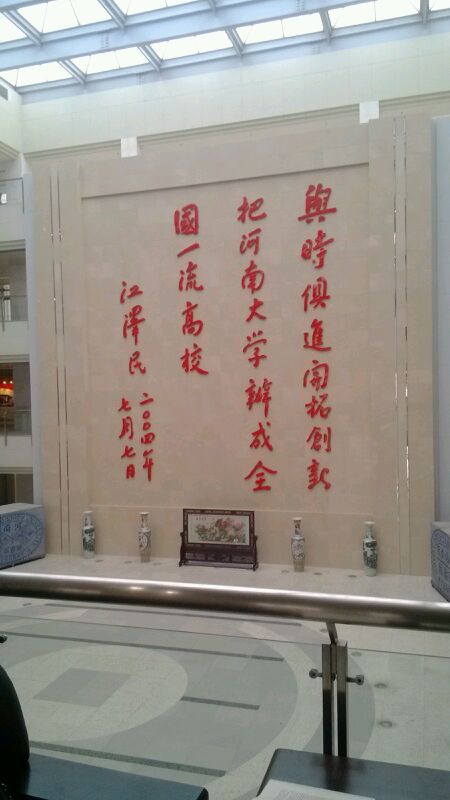 與時俱進開拓創新
把河南大学辦成全
國一流高校
江澤民
二〇〇四年
七月七日